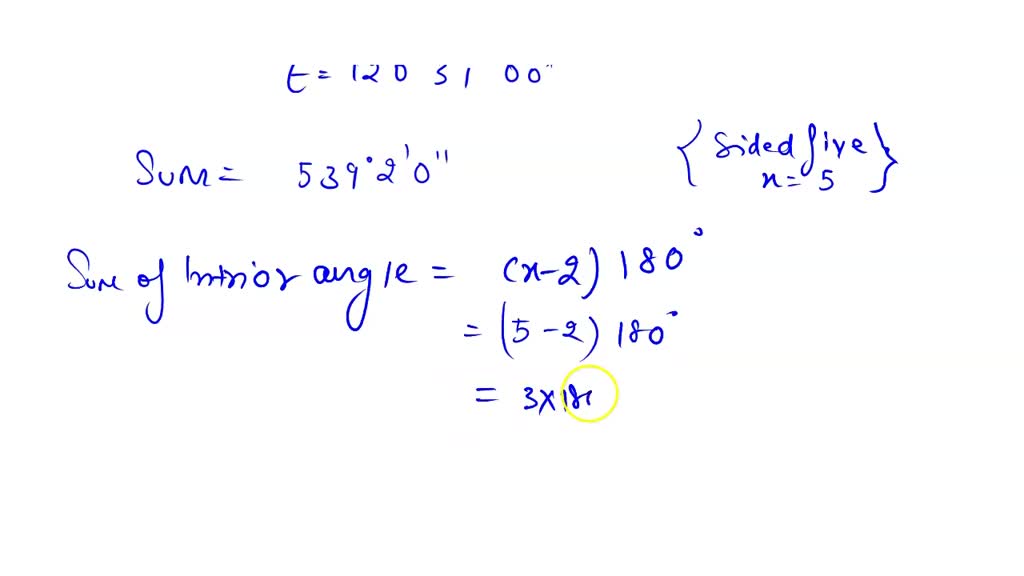 E = 120 51 00"
Sum = 539°2'0"
{ Sided five n = 5 }
Sum of Interior angle = (n-2) 180°
= (5-2) 180°
= 3×18